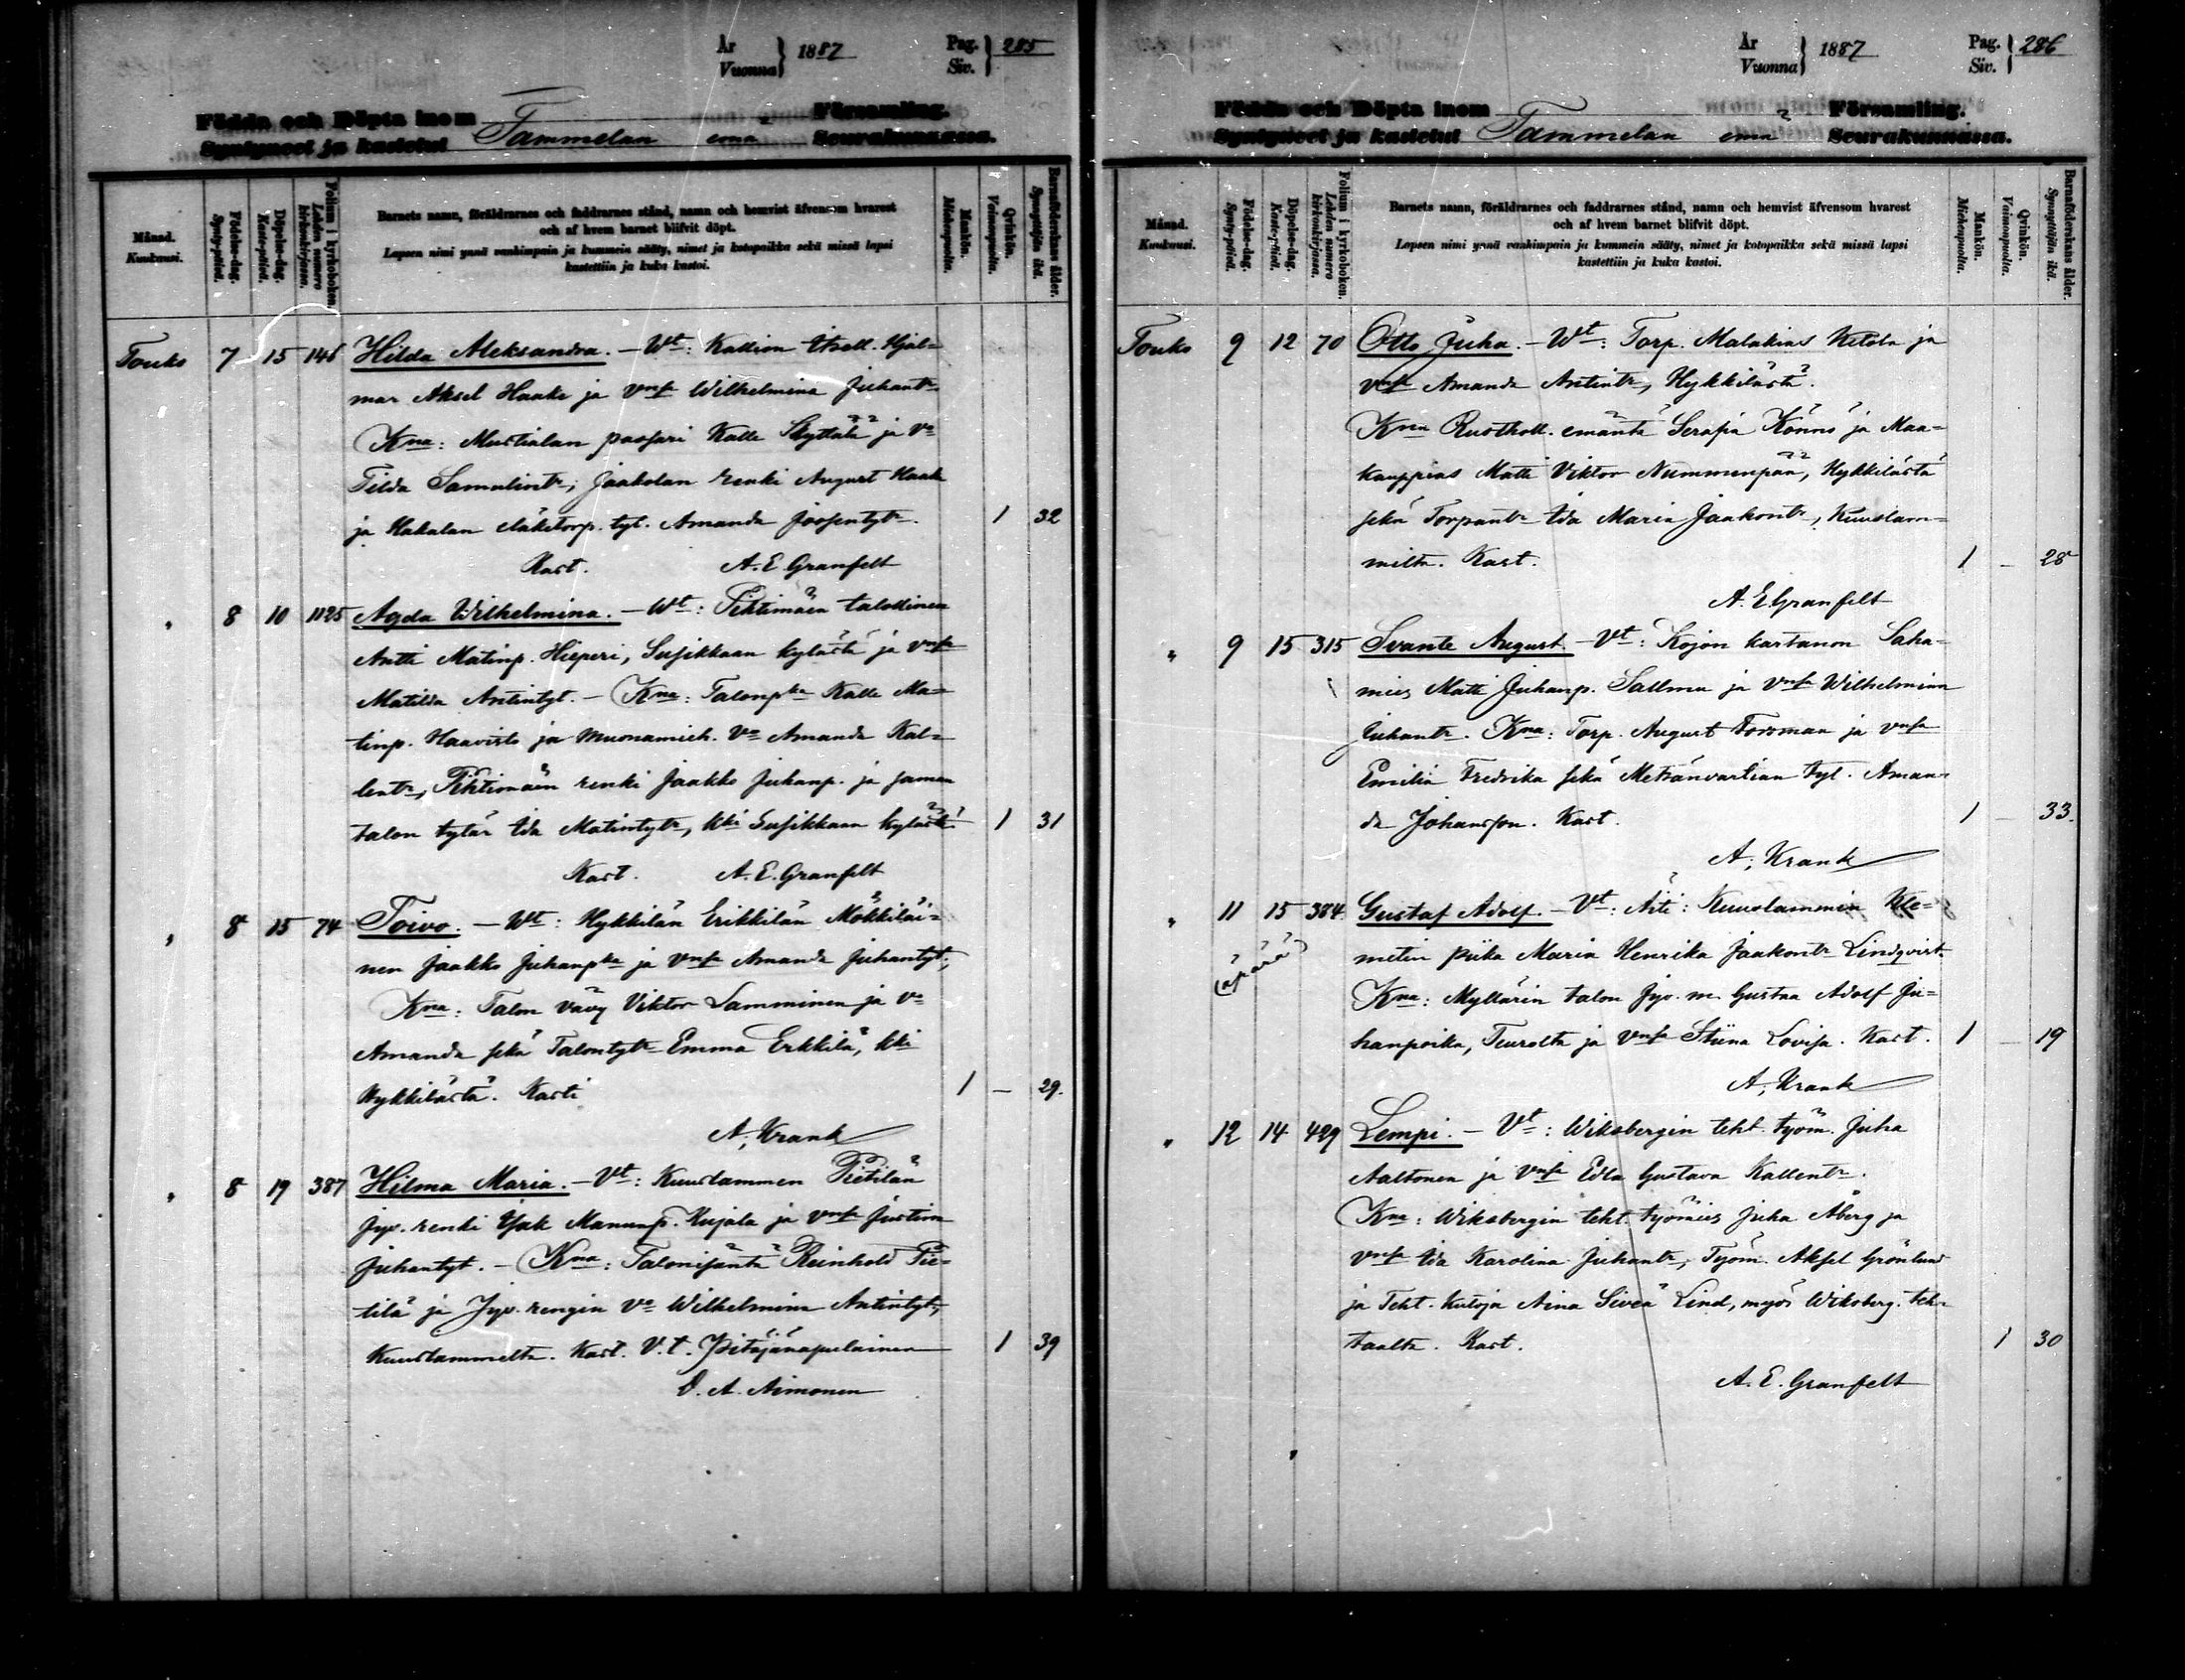 År
Vuonna } 1887
Pag.
Siv. } 285
Födda och Döpta inom Församling.
Syntyneet ja kastetut Tammelan emä Seurakunnassa.
Månad.
Kuukausi.
Födelse-dag.
Synty-päivä.
Döpelse-dag.
Kaste-päivä.
Folium i kyrkoboken.
Lehden numero
kirkonkirjassa.
Barnets namn, föräldrarnes och faddrarnes stånd, namn och hemvist äfvensom hvarest
och af hvem barnet blifvit döpt.
Lapsen nimi ynnä vanhimpain ja kummein sääty, nimet ja kotopaikka sekä missä lapsi
kastettiin ja kuka kastoi.
Mankön.
Miehenpuolta.
Qvinkön.
Vaimonpuolta.
Barnaföderskans ålder.
Synnyttäjän ikä.
Touko 7 15 146 Hilda Aleksandra. – Wt: Kallion itsell. Hjal=
mar Aksel Haake ja vmsa Wilhelmina Juhantr
Kna: Mustialan passari Kalle Skyttälä ja vo
Tilda Samulintr; Jaakolan renki August Haake
ja Hakalan eläketorp. tyt. Amanda Joosentytr. 1 32
Kast. A. E. Granfelt
" 8 10 1125 Agda Wilhelmina. – Wt: Pihtimäen talollinen
Antti Matinp. Hieperi, Susikkaan kylästä ja vmsa
Matilda Antintyt. – Kna: Talonpka Kalle Ma=
tinp. Haavisto ja muonamieh. Vo Amanda Kal=
lentr, Pihtimäen renki Jaakko Juhanp. ja saman
talon tytär Ida Matintytr, kki Susikkaan kylästä. 1 31
Kast. A. E. Granfelt
" 8 15 74 Toivo. – Wt: Hykkilän Erikkilän Mökkiläi=
nen Jaakko Juhanpka ja vmsa Amanda Juhantyt;
Kna: Talon vävy Viktor Lamminen ja vo
Amanda sekä Talontytr Emma Erkkilä, kki
Hykkilästä. Kasti 1 – 29.
A. Krank
" 8 19 387 Hilma Maria. – Vt: Kuuslammen Pietilän
Jyv. renki Isak Manunp. Kujala ja vmsa Justina
Juhantyt. – Kna: Talonisäntä Reinhold Pie=
tilä ja Jyv. rengin vo Wilhelmina Antintyt,
Kuuslammelta. Kast. V. t. Pitäjänapulainen 1 39
O. A. Aimonen
År
Vuonna } 1887
Pag.
Siv. } 286
Födda och Döpta inom Församling.
Syntyneet ja kastetut Tammelan emä Seurakunnassa.
Månad.
Kuukausi.
Födelse-dag.
Synty-päivä.
Döpelse-dag.
Kaste-päivä.
Folium i kyrkoboken.
Lehden numero
kirkonkirjassa.
Barnets namn, föräldrarnes och faddrarnes stånd, namn och hemvist äfvensom hvarest
och af hvem barnet blifvit döpt.
Lapsen nimi ynnä vanhimpain ja kummein sääty, nimet ja kotopaikka sekä missä lapsi
kastettiin ja kuka kastoi.
Mankön.
Miehenpuolta.
Qvinkön.
Vaimonpuolta.
Barnaföderskans ålder.
Synnyttäjän ikä.
Touko 9 12 70 Otto Juha. – Wt: Torp. Malakias Ketola ja
vmsa Amanda Antintr, Hykkilästä.
Kna Rustholl. emäntä Serafia Könnö ja Maa=
kauppias Matti Viktor Nummenpää, Hykkilästä
sekä Torpantr Ida Maria Jaakontr, Kuuslam=
milta. Kast. 1 – 28
A. E. Granfelt
" 9 15 315 Svante August – Vt: Kojon kartanon Saha=
mies Matti Juhanp. Sallma ja vmsa Wilhelmina
Juhantr. Kna: Torp. August Forsman ja vmsa
Emilia Fredrika sekä Metsänvartian tyt. Aman=
da Johansson. Kast. 1 – 33.
A. Krank
" 11 15 384 Gustaf Adolf. – Vt: Äiti: Kuuslammin Kle=
(äpärä) metin piika Maria Henrika Jaakontr Lindqvist.
Kna: Myllärin talon Jyv. m. Gustaa Adolf Ju=
hanpoika, Teurolta ja vmsa Stiina Lovisa. Kast. 1 – 19
A. Krank
" 12 14 429 Lempi. – Vt: Wiksbergin teht. työm. Juha
Aaltonen ja vmsa Edla Gustava Kallentr.
Kna: Wiksbergin teht. työmies Juha Åberg ja
vmsa Ida Karolina Juhantr, Työm. Aksel Grönlund
ja Teht. kutoja Aina Siveä Lind, myös Wiksberg. teh=
taalta. Kast. 1 30
A. E. Granfelt